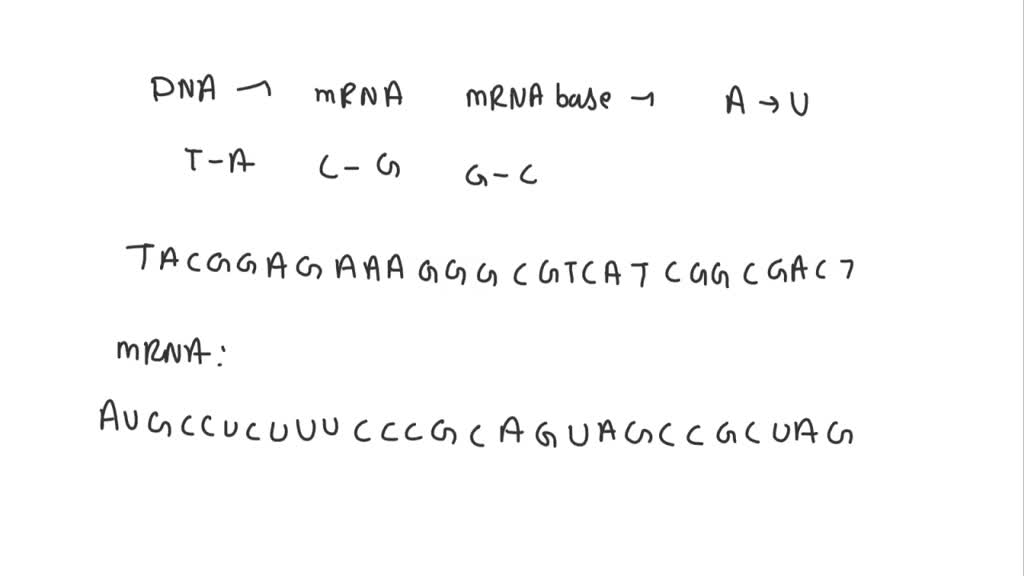 DNA → mRNA mRNA base → A → U
T-A C-G G-C
TACGGAGAAAGGGCGTCATCGGCGACT
mRNA:
AUGCCUCUUUCCCGCAGUAGCCGCUAG